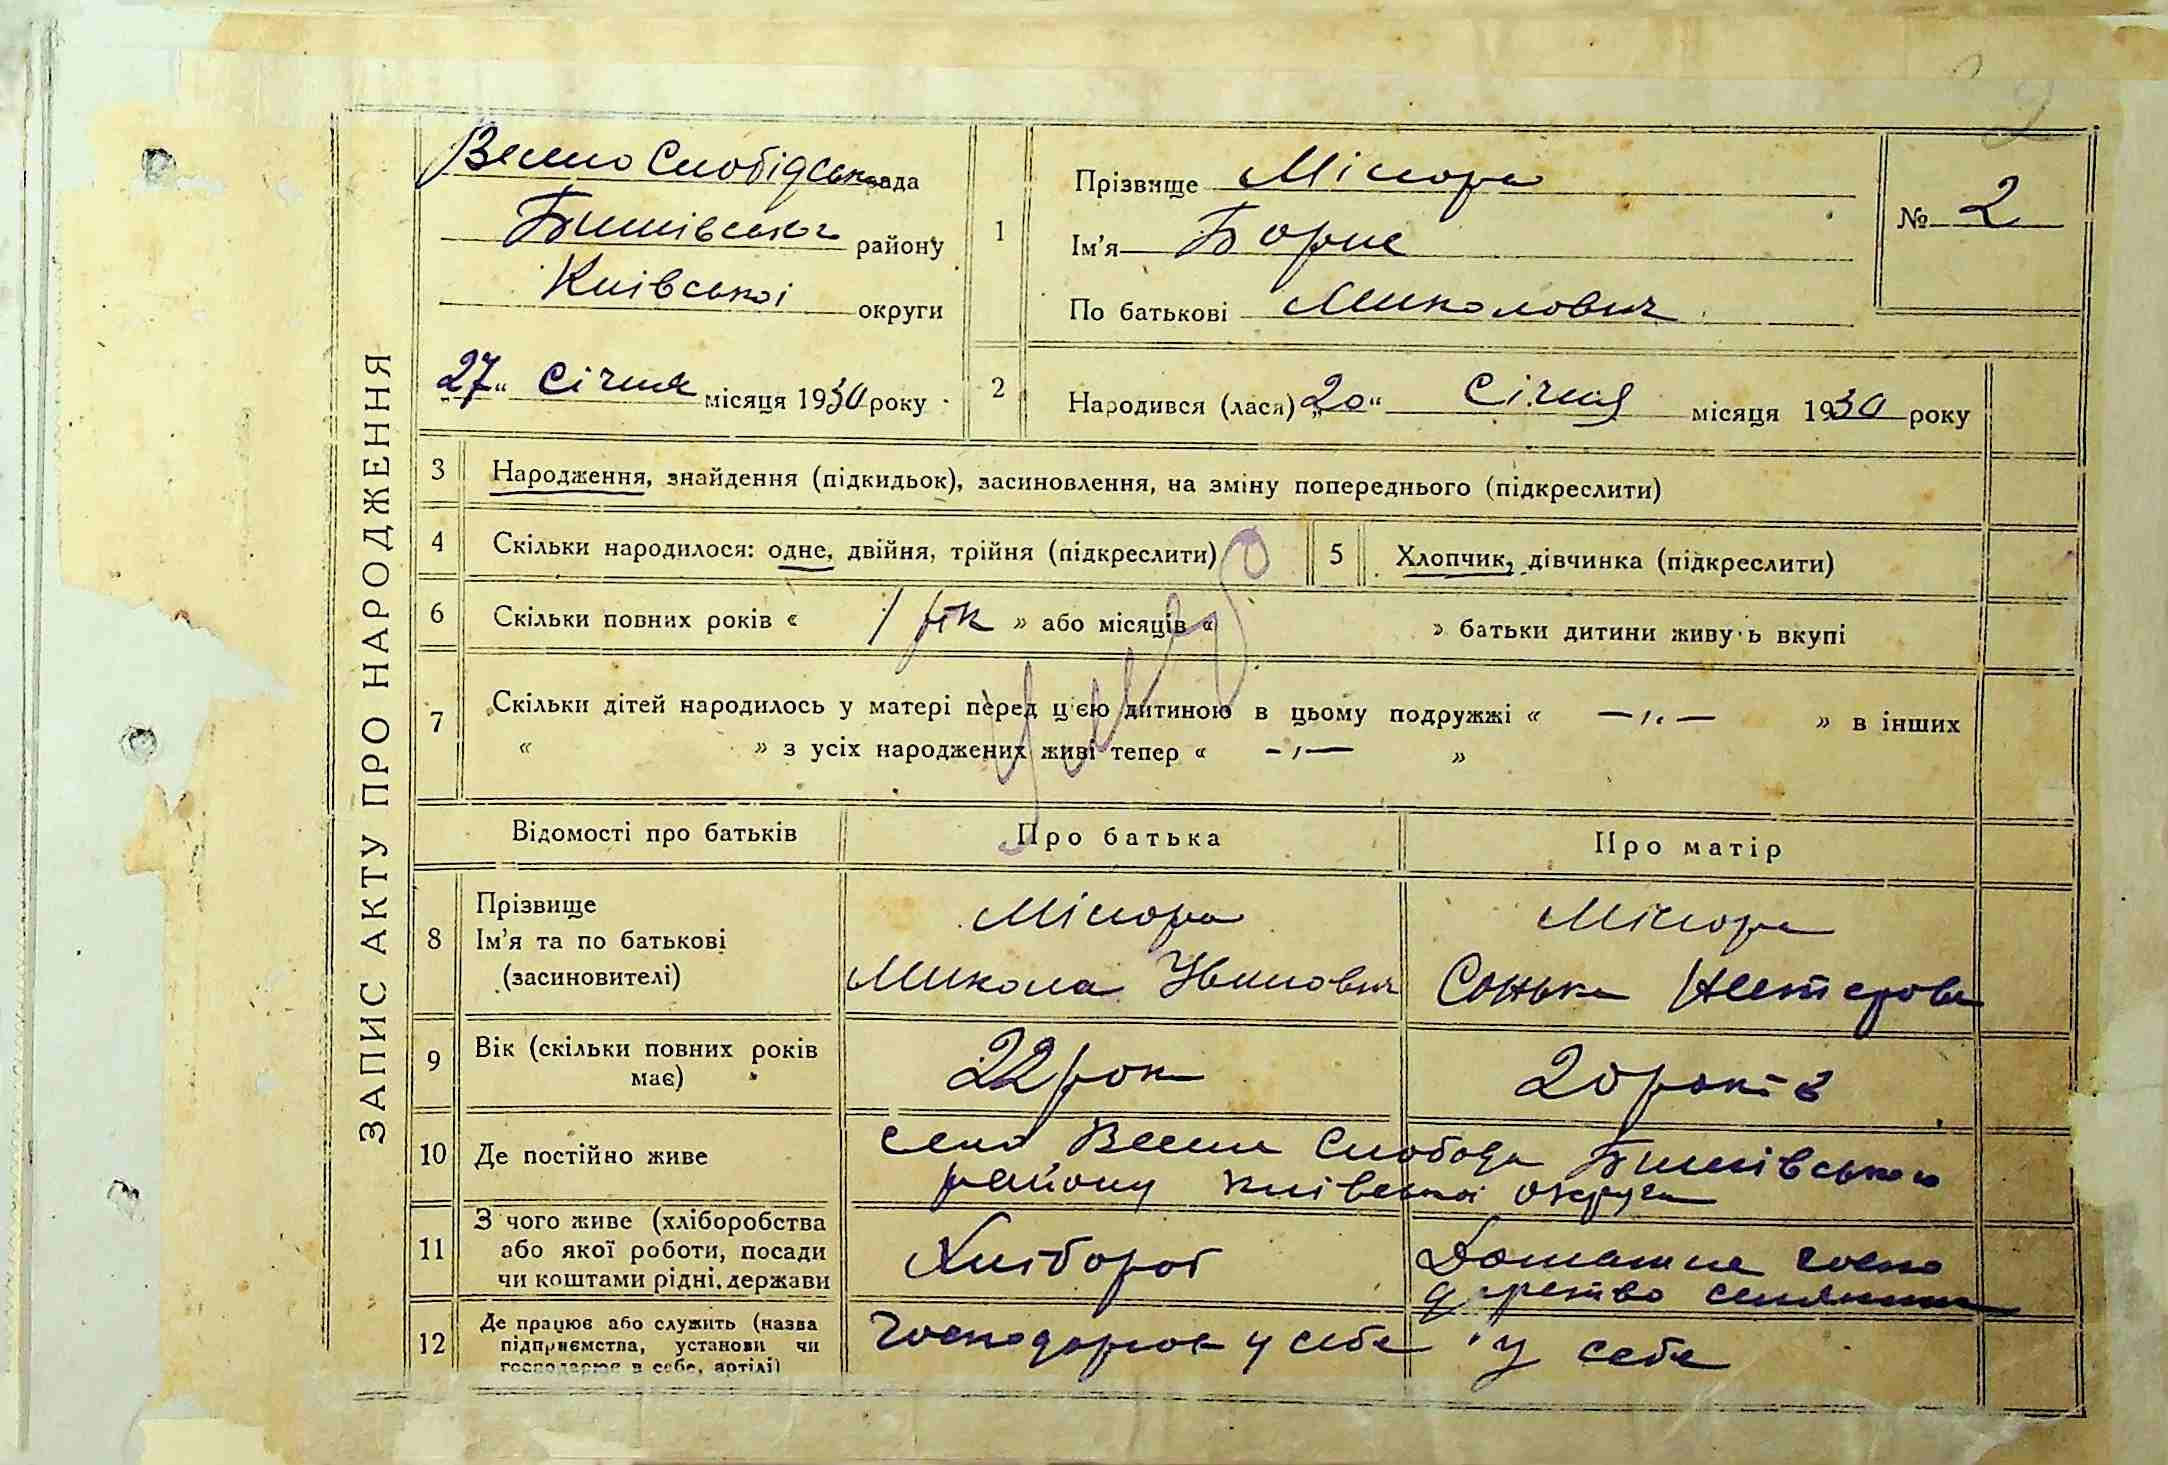 ЗАПИС АКТУ ПРО НАРОДЖЕННЯ
Весело Слобідська рада
Бишівського району
Київської округи
27 " Січня місяця 1930 року
1
Прізвище Місюра
Ім'я Борис
По батькові Миколович
№ 2
2
Народився (лася) „ 20 " Січня місяця 1930 року
3 Народження, знайдення (підкидьок), засиновлення, на зміну попереднього (підкреслити)
4 Скільки народилося: одне, двійня, трійня (підкреслити)
5 Хлопчик, дівчинка (підкреслити)
6 Скільки повних років « 1 рік » або місяців « » батьки дитини живуть вкупі
7 Скільки дітей народилось у матері перед ц'єю дитиною в цьому подружжі « —„— » в інших
« » з усіх народжених живі тепер « —„— »
Відомості про батьків Про батька Про матір
8 Прізвище
Ім'я та по батькові
(засиновителі)
Місюра
Микола
Місюра
Сонька Нестерова
9 Вік (скільки повних років
має)
22 рок
20 років
10 Де постійно живе
село Весела Слобода Бишівського
району Київської округи
11 З чого живе (хліборобства
або якої роботи, посади
чи коштами рідні, держави
Хлібороб
Домашне госпо
дарство
12 Де працює або служить (назва
підприємства, установи чи
господарює в себе, артілі)
Господарює у себе
у себе